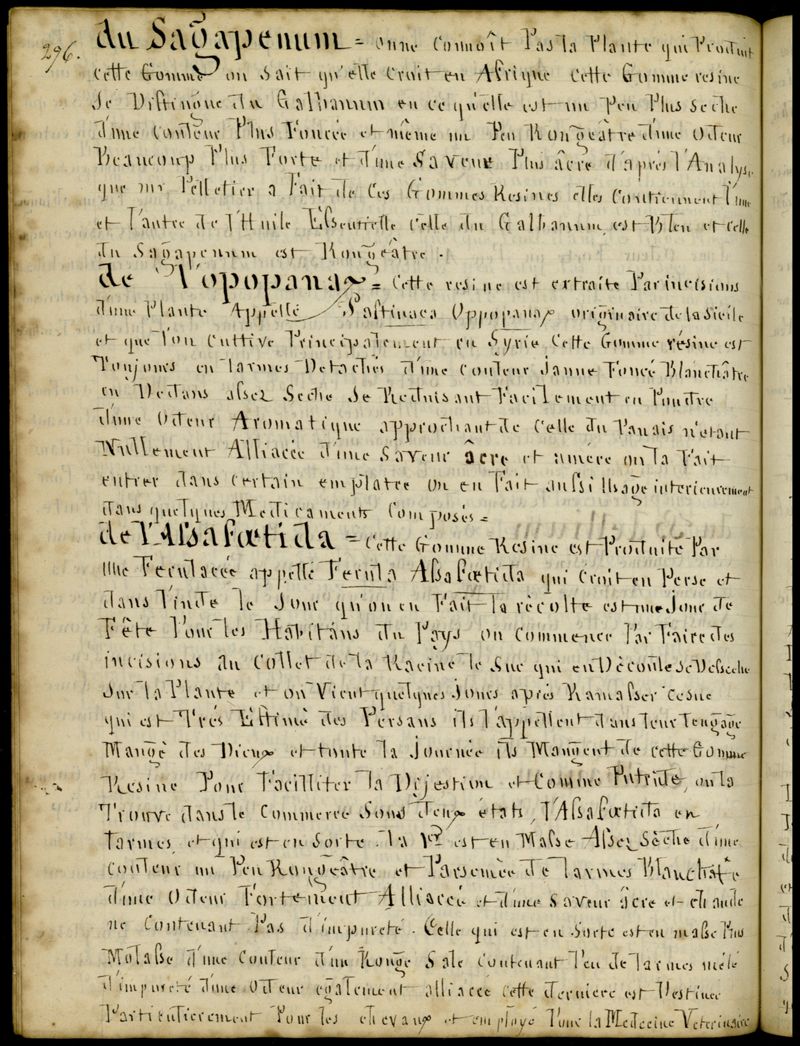 296.
du Sagapenum = onne Connoît Pas la Plante qui Produit
Cette Gomme on Sait qu'elle Croit en Afrique Cette Gomme resine
Se Distingue du Galbanum en ce qu'elle est un Peu Plus Seche
d'une Couleur Plus Foncée et même un Peu Rougeâtre d'une Odeur
Beaucoup Plus Forte et d'une Saveur Plus âcre d'après l'Analyse
que mr Pelletier a Fait de Ces Gommes Resines elles Contiennent l'une
et l'autre de l'Huile Essentielle Celle du Galbanum est Bleu et Celle
du Sagapenum est Rougeâtre.
de l'opopanax = Cette resine est extraite Par incisions
d'une Plante Appellé Pastinaca Oppopanax originaire de la Sicile
et que l'on Cultive Principalement en Syrie Cette Gomme résine est
Toujours en larmes Detachés d'une Couleur Jaune Foncé Blanchâtre
en Dedans assez Seche Se Reduisant Facilement en Poudre
d'une Odeur Aromatique approchant de Celle du Panais n'etant
Nullement Alliacée d'une Saveur âcre et amère on la Fait
entrer dans Certain emplatre on en Fait aussi Usage interieurement
dans quelques Medicaments Composés =
de l'Assafœtida = Cette Gomme Resine est Produite Par
Une Ferulacée appellé Ferula Assafœtida qui Croit en Perse et
dans l'inde le Jour qu'on en Fait la récolte est une Jour de
Fête Pour les Habitans du Pays on Commence Par Faire des
incisions au Collet de la Racine le Suc qui en Découle Se Desseche
Sur la Plante et on Vient quelques Jours après Ramasser Ce Suc
qui est Trés Estimé des Persans ils l'appellent dans leur Lengage
Mangé des Dieux et toute la Journée ils Mangent de Cette Gomme
Resine Pour Facilliter la Dijestion et Comme Putride on la
Trouve dans le Commerce Sous deux états, l'Assafœtida en
larmes, et qui est en Sorte. la 1re est en Masse Assez Sèche d'une
Couleur un Peu Rougeâtre et Parsemée de larmes Blanchatre
d'une Odeur Fortement Alliacé et d'une Saveur âcre et chaude
ne Contenant Pas d'impureté. Celle qui est en Sorte est en masse Plus
Molasse d'une Couleur d'un Rouge Sale Contenant Peu de larmes mélé
d'impureté d'une Odeur egalement alliacée Cette derniere est Destinée
Particulierement Pour les chevaux et employé Pour la Medecine Veterinaire